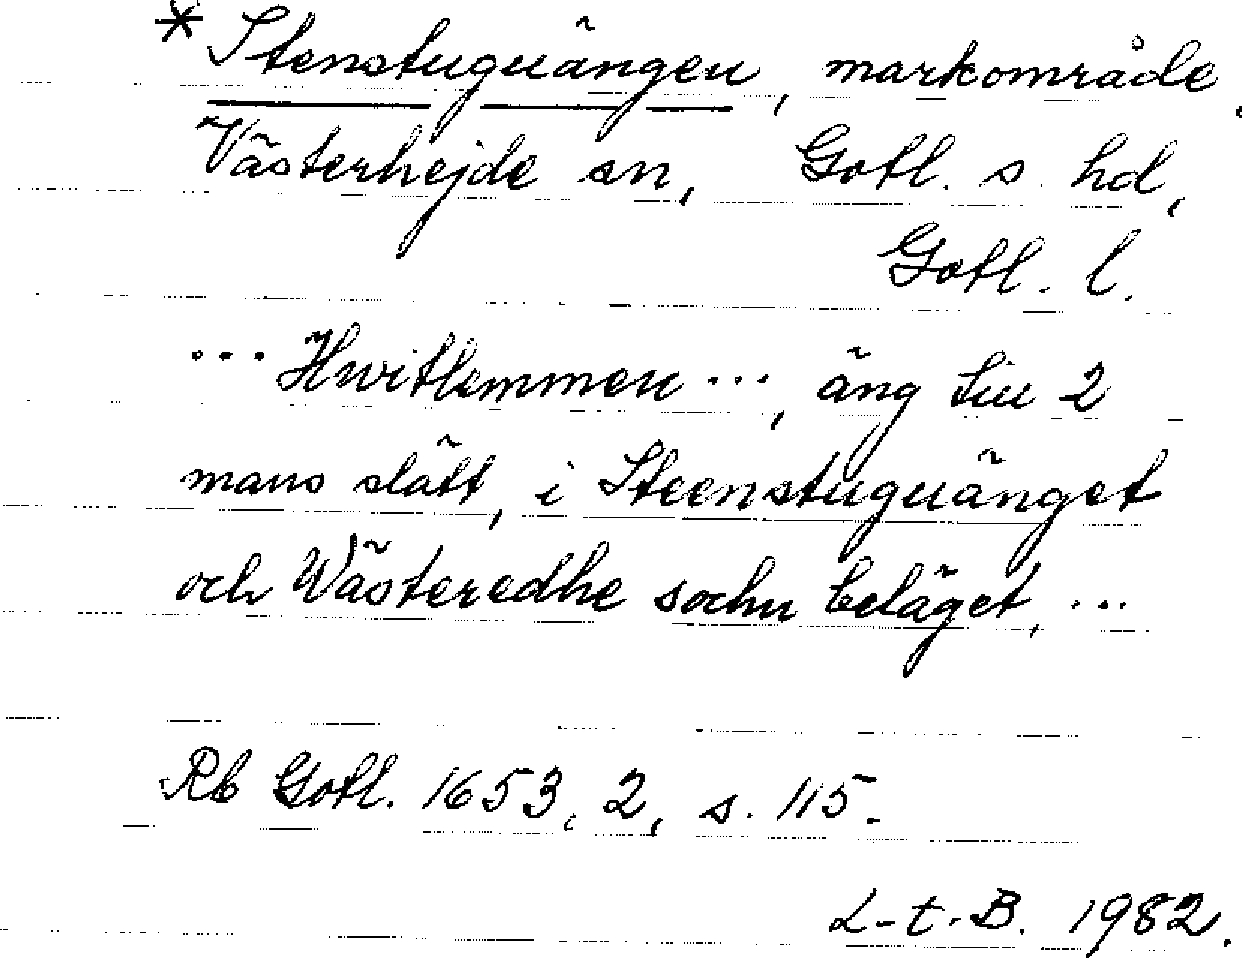 * Stenstuguängen, markområde.
Västerhejde sn, Gotl. s. hd,
Gotl. l.
... Hwitlemmen ..., äng tiu 2
mans slätt, i Steenstuguänget
och Wästeredhe sochn beläget, ...
Rb Gotl. 1653, 2, s. 115.
L-t. B. 1982.